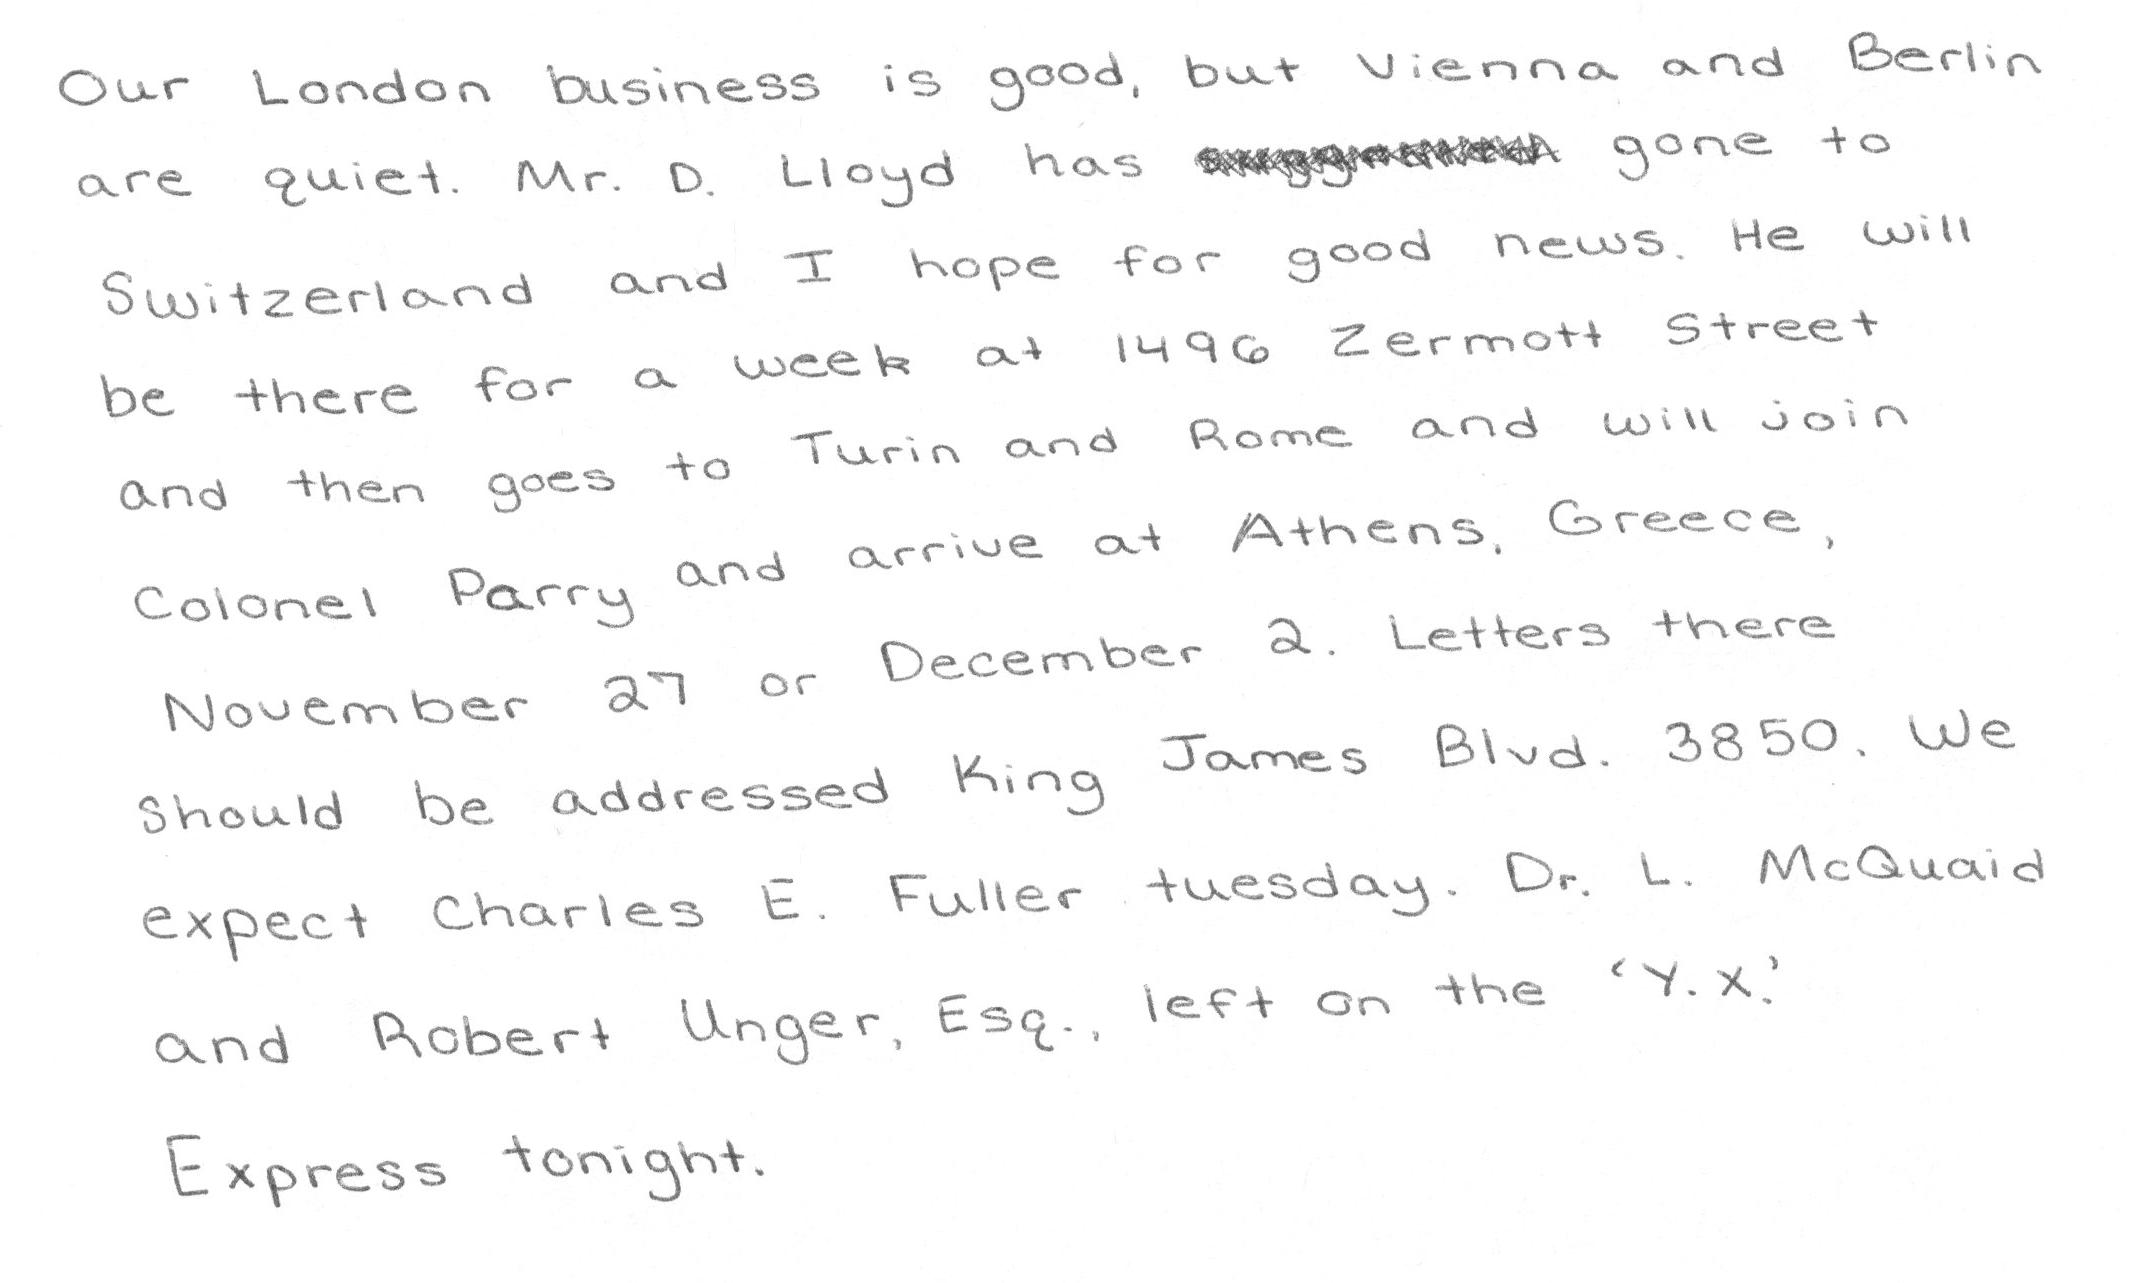 Our London business is good, but Vienna and Berlin
are quiet. Mr. D. Lloyd has gone to
Switzerland and I hope for good news. He will
be there for a week at 1496 Zermott Street
and then goes to Turin and Rome and will join
Colonel Parry and arrive at Athens, Greece,
November 27 or December 2. Letters there
should be addressed King James Blvd. 3850. We
expect Charles E. Fuller tuesday. Dr. L. McQuaid
and Robert Unger, Esq., left on the 'Y.X.'
Express tonight.